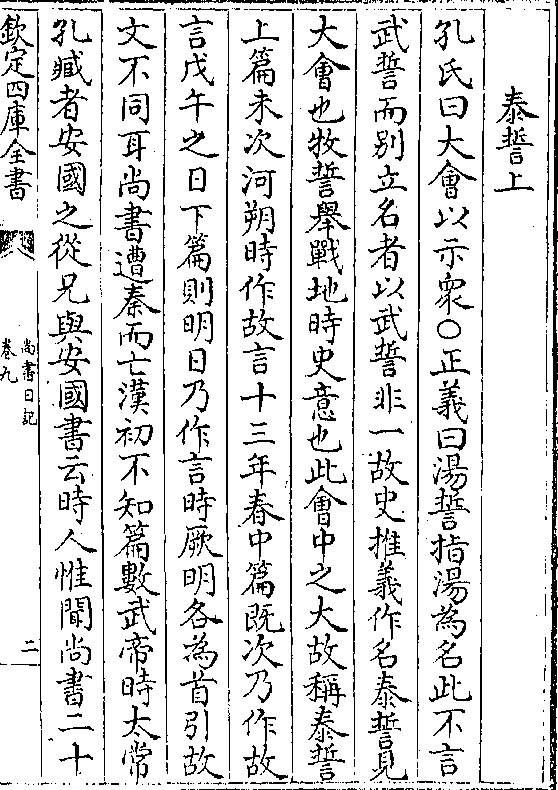 泰誓上
孔氏曰大㑹以示衆○正義曰湯誓指湯為名此不言
武誓而别立名者以武誓非一故史推義作名泰誓見
大㑹也牧誓舉戰地時史意也此㑹中之大故稱泰誓
上篇未次河朔時作故言十三年春中篇既次乃作故
言戊午之日下篇則明日乃作言時厥明各為首引故
文不同耳尚書遭秦而亡漢初不知篇數武帝時太常
孔臧者安國之從兄與安國書云時人惟聞尚書二十
欽定四庫全書
尚書日記
卷九
二